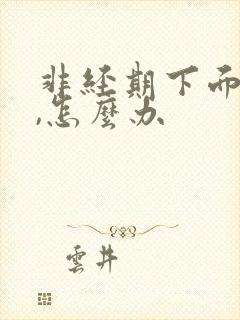 非经期下面
,怎麼办
雲井